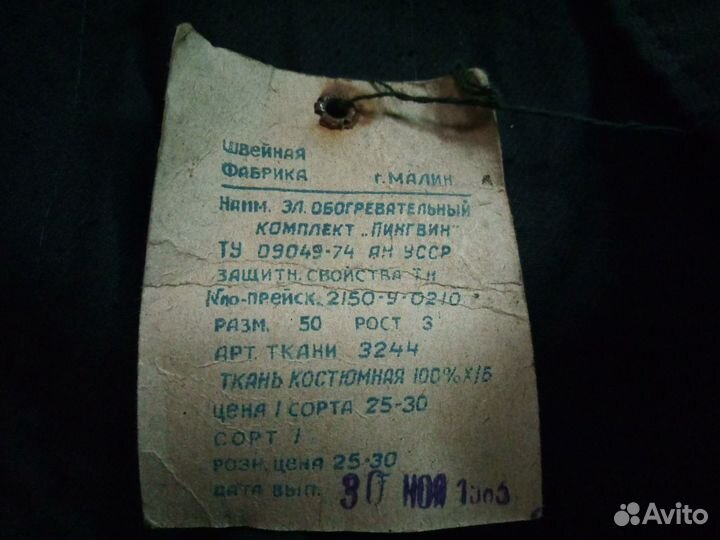 ШВЕЙНАЯ
ФАБРИКА г. МАЛИН
НАИМ. ЭЛ. ОБОГРЕВАТЕЛЬНЫЙ
КОМПЛЕКТ „ПИНГВИН"
ТУ 09049-74 АН УССР
ЗАЩИТН. СВОЙСТВА ТН
№ по-ПРЕЙСК. 2150-У-0210
РАЗМ. 50 РОСТ 3
АРТ. ТКАНИ 3244
ТКАНЬ КОСТЮМНАЯ 100% Х/Б
ЦЕНА I СОРТА 25-30
СОРТ I
РОЗН. ЦЕНА 25-30
ДАТА ВЫП. 30 НОЯ
Avito